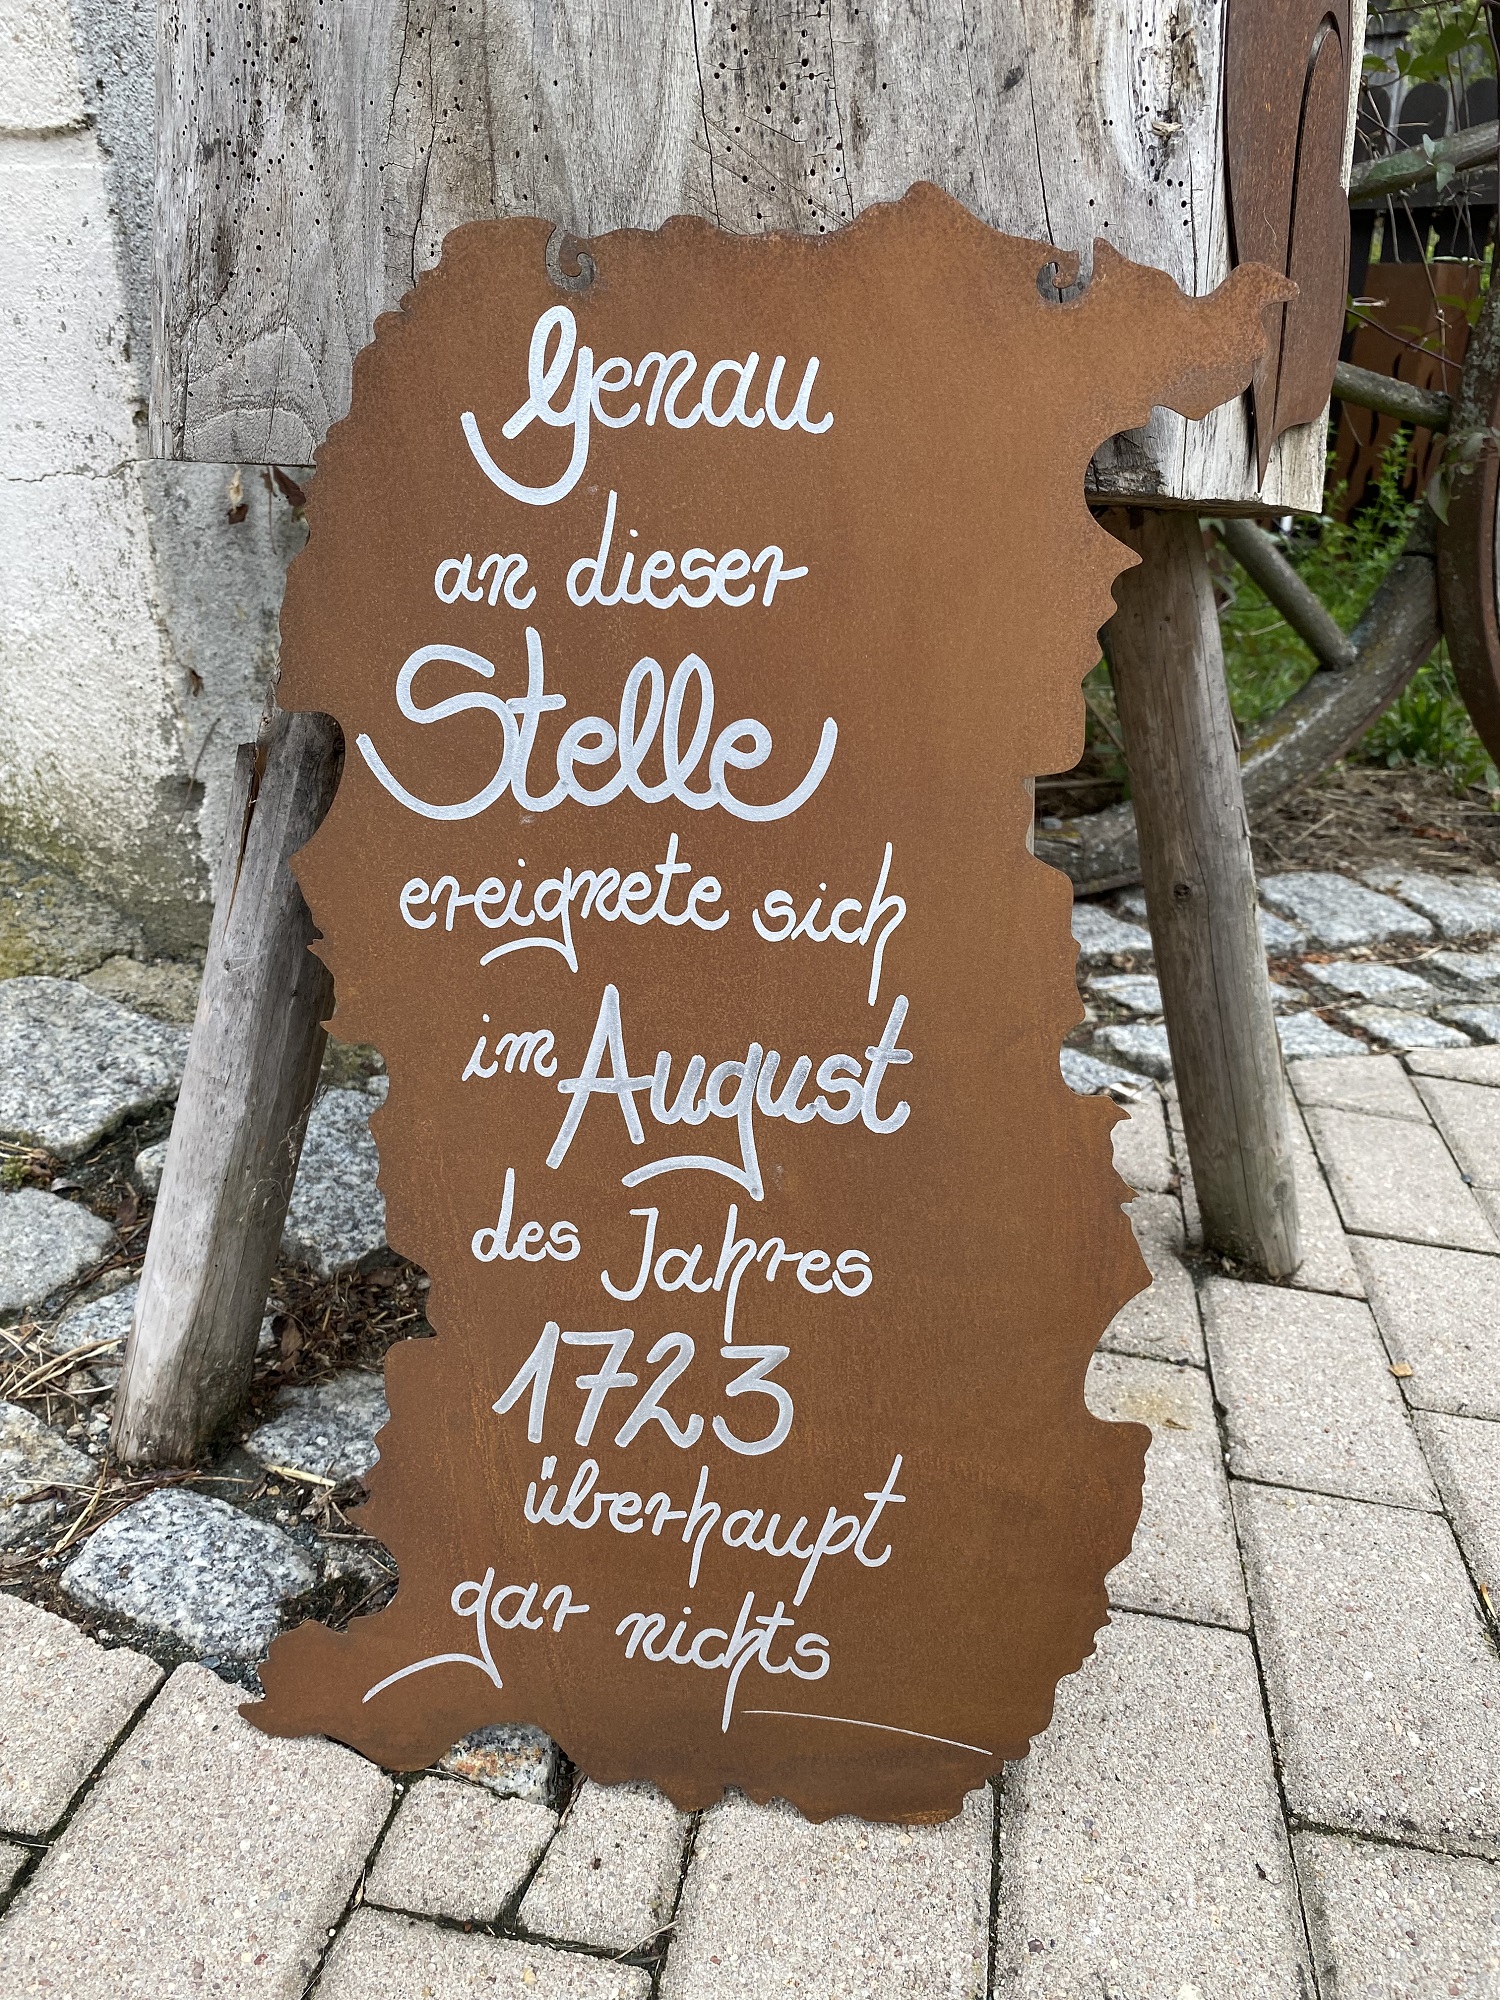 Genau
an dieser
Stelle
ereignete sich
im August
des Jahres
1723
überhaupt
gar nichts